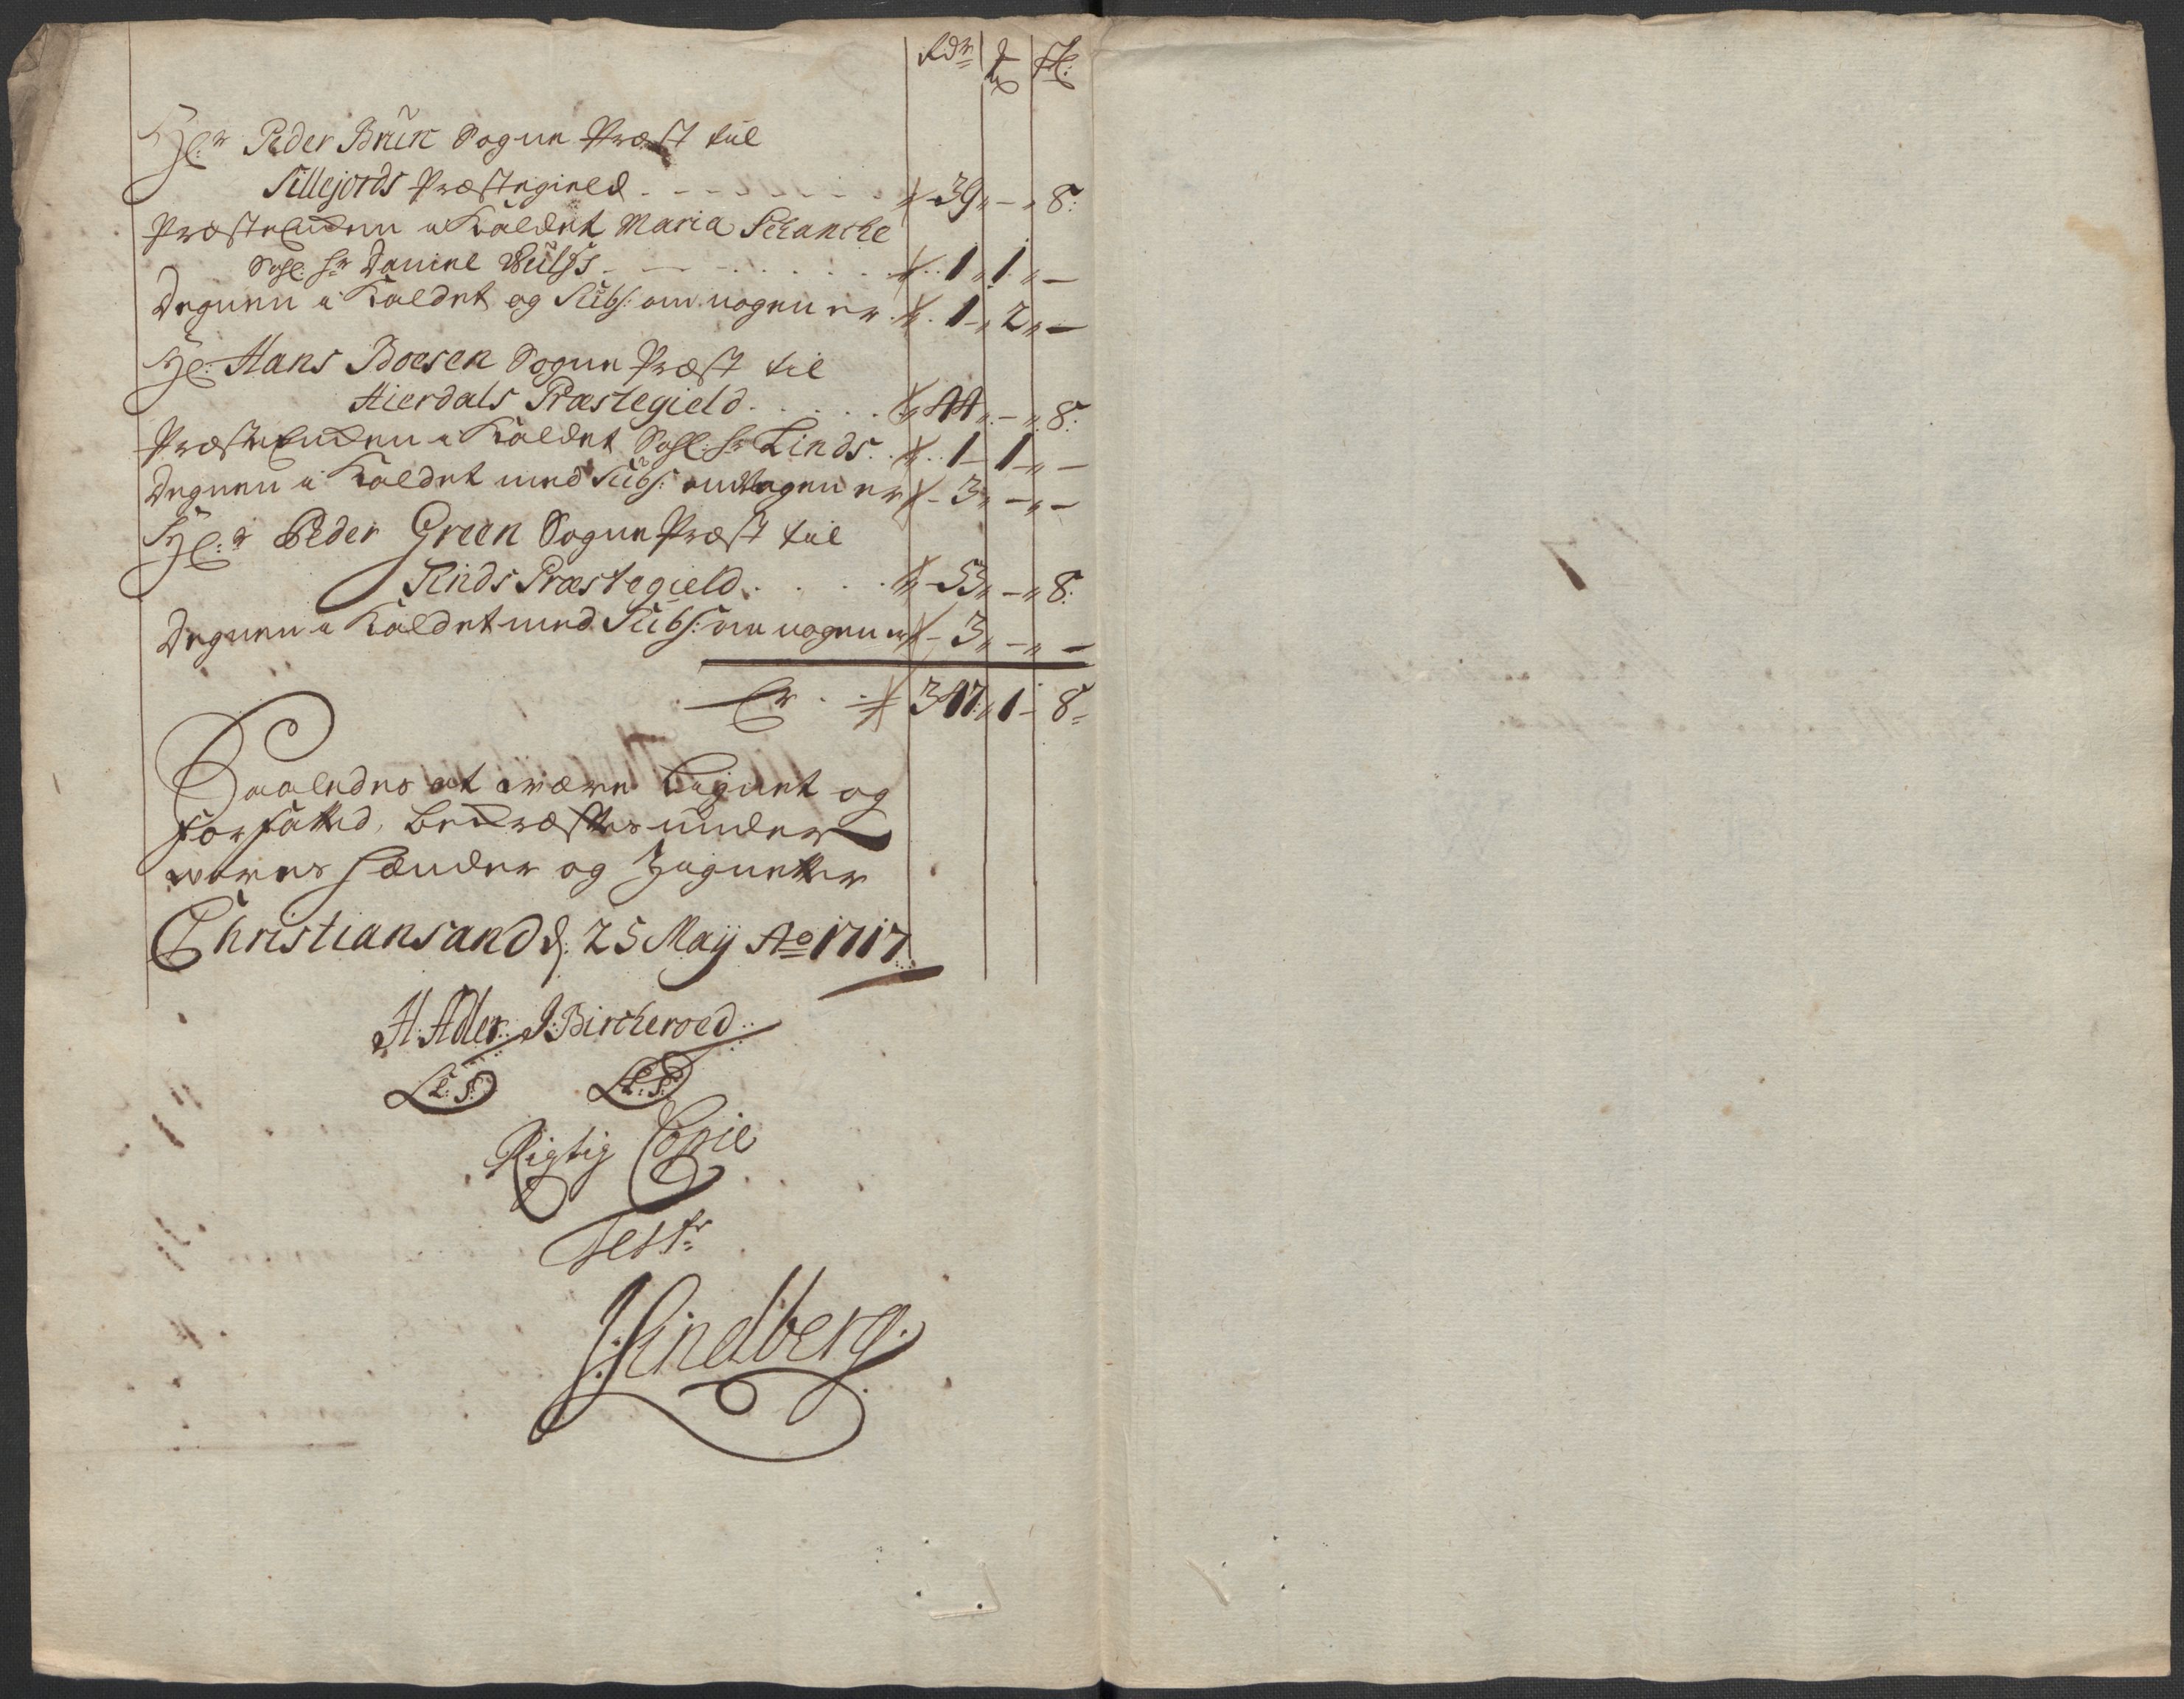 Rdr | ℔ | sk:
Hl:r Peder Brun Sogne Præst til
Sillejords Præstegield - - - 39 „ - „ 8:
Præste Enken i Kaldet Maria Schanche
Sahl: Hr Daniel Bulfs - - - 1 „ 1 „ -
Degnen i Kaldet og Subs: om nogen er 1 „ 2 „ -
Hl: Hans Boesen Sogne Præst til
Hierdals Præstegield . . . . . 44 „ - „ 8:
Præste Enken i Kaldet Sahl: Hr Linds . . 1 - 1 „ -
Degnen i Kaldet med Subs: om nogen er - 3 „ - „ -
Hl:r Peder Green Sogne Præst til
Tinds Præstegield . . . . - 53 „ - „ 8:
Degnen i Kaldet med Subs: om nogen er - 3 „ - „ -
Er . 347 „ 1 - 8
Saaledes at være Lignet og
forfatted, bekræftes under
vores Hænder og Zigneter
Christiansand d: 25 Maij Ao 1717
A: Adler. J: Bircheroed
L:S: L:S:
Rigtig Copie
Test:r
J: Lindberg.